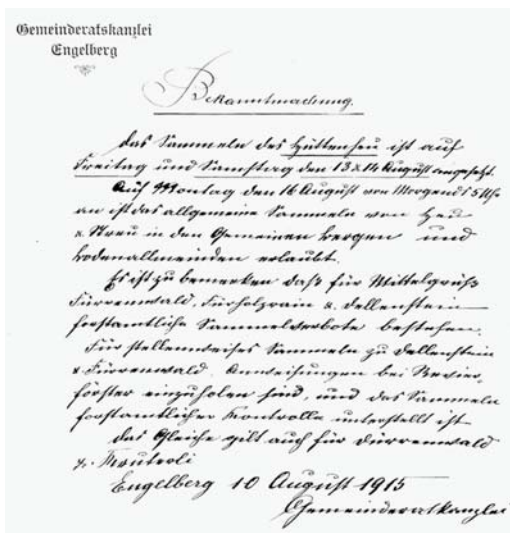 Gemeinderatskanzlei
Engelberg
Bekanntmachung.
Das Sammeln des Hüttenheu ist auf
Freitag und Samstag den 13 & 14 August angesetzt.
Auf Montag den 16 August von Morgens 5 Uhr
an ist das allgemeine Sammeln von Heu
& Streu in den Gemeinen bergen und
bodenallmeinden erlaubt.
Es ist zu bemerken daß für
Fürrenwald, Fürholzrain & Dellenstein
forstamtliche Sammelverbote bestehen.
Für stellenweises Sammeln zu Dellenstein
& Fürrenwald Anweisungen bei Revier,
förster einzuholen sind, und das Sammeln
forstamtlicher Kontrolle unterstellt ist
das Gleiche gilt auch für Dürrenwald
&
Engelberg 10 August 1915
Gemeinderatkanzlei